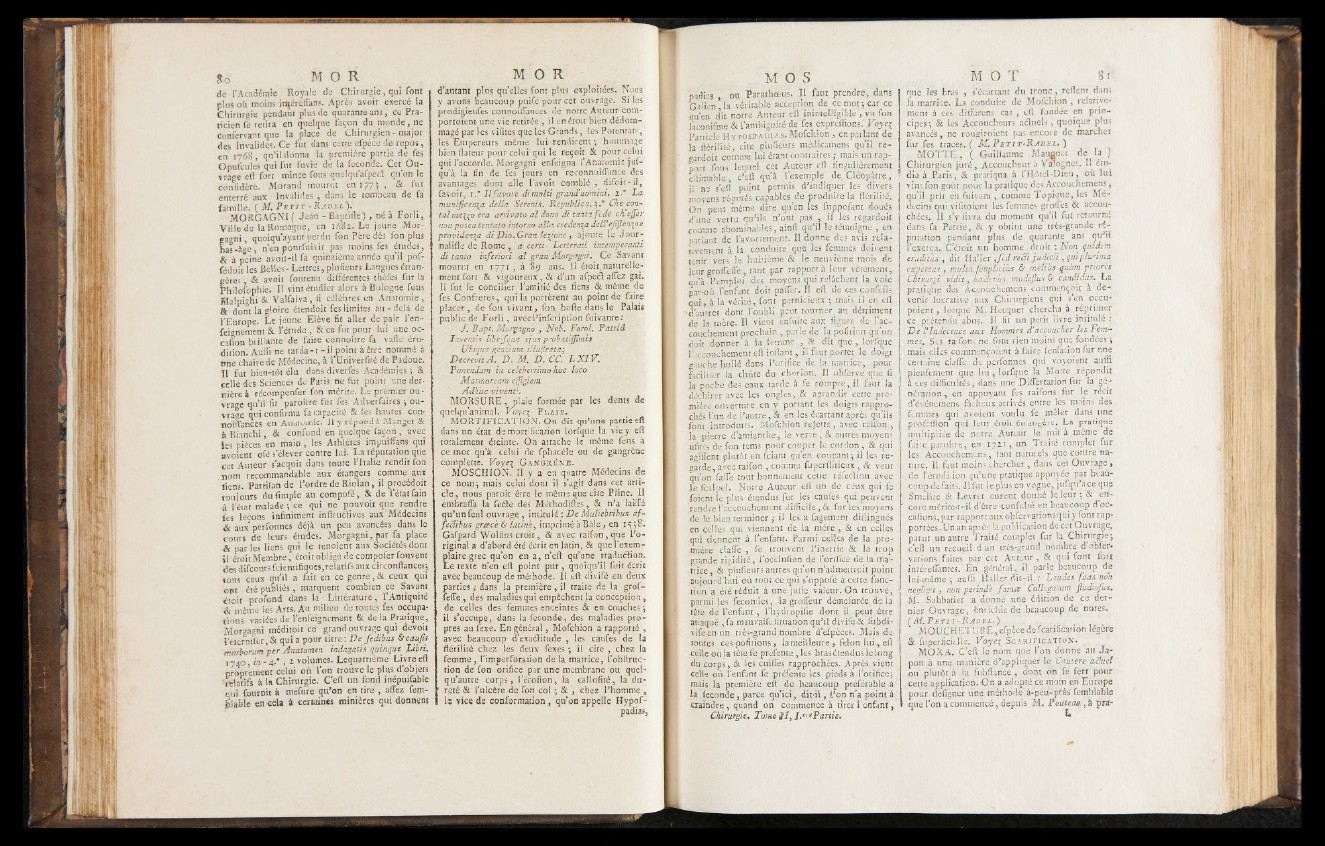 80 MOR
de l'Académie Royale de Chirurgie, qui font
plus ou moins intéreſſans. Après avoir exercé la
Chirurgie pendant plus de quarante ans, ce Pra-
ticien ſe retira en quelque façon du monde, ne
conſervant que la place de Chirurgien-major
des Invalides. Ce fut dans cette eſpèce de repos,
en 1768, qu'il donna la première partie de ſes
Opuſcules qui fut ſuivie de la ſeconde. Cet Ou-
vrage eſt fort mince ſous quelqu'aſpect qu'on le
conſidère. Morand mourut en 1773, & fut
enterré aux Invalides, dans le tombeau de ſa
famille. (M. PETIT-RADEL).
MORGAGNI (Jean-Baptiſte), né à Forli,
Ville de la Romagne, en 1682. Le jeune Mor-
gagni, quoiqu'ayant perdu ſon Père dès ſon plus
bas-âge, n'en pourſuivit pas moins ſes études,
& à peine avoit-il ſa quinzième année qu'il poſ-
ſédoit les Belles-Lettres, pluſieurs Langues étran-
gères, & avoit ſoutenu différentes thèſes ſur la
Philoſophie. Il vint étudier alors à Bologne ſous
Malpighi & Valſalva, ſi célèbres en Anatomie,
& dont la gloire étendoit ſes limites au-delà de
l'Europe. Le jeune Elève fit aller de pair l'en-
ſeignement & l'étude, & ce fut pour lui une oc-
caſion brillante de faire connoître ſa vaſte éru-
dition. Auſſi ne tarda-t-il point à être nommé à
une chaire de Médecine, à l'Univerſité de Padoue.
Il fut bien-tôt élu dans diverſes Académies; &
celle des Sciences de Paris ne fut point une der-
nière à récompenſer ſon mérite. Le premier ou-
vrage qu'il fit paroître fut ſes Adverſaires; ou-
vrage qui confirma ſa capacité & ſes hautes con-
noiſſances en Anatomie. Il y répond à Manget &
à Bianchi, & confond en quelque façon, avec
les pièces en main, les Athlètes impuiſſans qui
avoient oſé s'élever contre lui. La réputation que
cet Auteur s'acquit dans toute l'Italie rendit ſon
nom recommandable aux étangers comme aux
ſiens. Partiſan de l'ordre de Riolan, il procédoit
toujours du ſimple au compoſé, & de l'état ſain
à l'état malade; ce qui ne pouvoit que rendre
ſes leçons infiniment inſtructives aux Médecins
& aux perſonnes déjà un peu avancées dans le
cours de leurs études. Morgagni, par ſa place
& par les liens qui le tenoient aux Sociétés dont
il étoit Membre, étoit obligé de compoſer ſouvent
des diſcours ſcientifiques, relatifs aux circonſtances;
tous ceux qu'il a fait en ce genre, & ceux qui
ont été publiés, marquent combien ce Savant
étoit profond dans la Littérature, l'Antiquité
& même les Arts. Au milieu de toutes ſes occupa-
tions variées de l'enſeignement & de la Pratique,
Morgagni méditoit ce grand ouvrage qui devoit
l'éterniſer, & qui a pour titre: De ſedibus & cauſis
morborum per Anatomen indagatis quinque Libri.
1740, in-4.°, 2 volumes. Le quatrième Livre eſt
proprement celui où l'on trouve le plus d'objets
relatifs à la Chirurgie. C'eſt un fond inépuiſable
qui fournit à meſure qu'on en tire, aſſez ſem-
blable en cela à certaines minières qui donnent
MOR
d'autant plus qu'elles ſont plus exploitées. Nous
y avons beaucoup puiſé pour cet ouvrage. Si les
prodigieuſes connoiſſances de notre Auteur com-
portoient une vie retirée, il en étoit bien dédom-
magé par les viſites que les Grands, les Potentats,
les Empereurs même lui rendirent; hommage
bien flateur pour celui qui le reçoit & pour celui
qui l'accorde. Morgagni enſeigna l'Anatomie juſ-
qu'à la fin de ſes jours en reconnoiſſance des
avantages dont elle l'avoit comblé, diſoit-il,
ſavoir, 1.° Il favore di molti grand'uomini. 2.° La
munificenza della Sereniſ. Republica. 3.° Che con-
tal mezzo era arrivato al dono di tanta fede ch'eſſer
non potea tentato intorno alla credenza dell'eſiſtenza e
providenza di Dio. Gran lezione, ajoute le Jour-
naliſte de Rome, a certi Letterati intemperanti
di tanto inferiori al gran Morgagni. Ce Savant
mourut en 1771, à 89 ans. Il étoit naturelle-
ment fort & vigoureux, & d'un aſpect aſſez gai.
Il ſut ſe concilier l'amitié des ſiens & même de
ſes Confreres, qui la portèrent au point de faire
placer, de ſon vivant, ſon buſte dans le Palais
public de Forli, avec l'inſcription ſuivante:
J. Bapt. Morgagno, Nob. Forol. Patria
Inventis libriſque ejus probatiſſimis
Ubique gentium illuſtrata,
Decrevit A. D. M. D. CC. LXIV.
Ponendam in celeberrimo hoc loco
Marmoream effigiem
Adhuc viventi.
MORSURE, plaie formée par les dents de
quelqu'animal. Voyez PLAIE.
MORTIFICATION. On dit qu'une partie eſt
dans un état de mortification lorſque la vie y eſt
totalement éteinte. On attache le même ſens à
ce mot qu'à celui de ſphacèle ou de gangrène
complette. Voyez GANGRÈNE.
MOSCHION. Il y a eu quatre Médecins de
ce nom; mais celui dont il s'agit dans cet arti-
cle, nous paroît être le même que cite Pline. Il
embraſſa la ſecte des Méthodiſtes, & n'a laiſſé
qu'un ſeul ouvrage, intitulé: De Muliebribus af-
fectibus græcè & latinè, imprimé à Bâle, en 1538.
Gaſpard Wolfius croit, & avec raiſon, que l'o-
riginal a d'abord été écrit en latin, & que l'exem-
plaire grec qu'on en a, n'eſt qu'une traduction.
Le texte n'en eſt point pur, quoiqu'il ſoit écrit
avec beaucoup de méthode. Il eſt diviſé en deux
parties; dans la première, il traite de la groſ-
ſeſſe, des maladies qui empêchent la conception,
de celles des femmes enceintes & en couches;
il s'occupe, dans la ſeconde, des maladies pro-
pres au ſexe. En général, Moſchion a rapporté,
avec beaucoup d'exactitude, les cauſes de la
ſtérilité chez les deux ſexes; il cite, chez la
femme, l'imperforation de la matrice, l'obſtruc-
tion de ſon orifice par une membrane ou quel-
qu'autre corps, l'éroſion, la calloſité, la du-
reté & l'ulcère de ſon col; &, chez l'homme,
le vice de conformation, qu'on appelle Hypoſ-
padias,
MOS
padies, ou Parathœus. Il faut prendre, dans
Galien, la véritable acception de ce mot; car ce
qu'en dit notre Auteur eſt inintelligible, vu ſon
laconiſme & l'ambiguité de ſes expreſſions. Voyez
l'article HYPOSPADIAS. Moſchion, en parlant de
la ſtérilité, cite pluſieurs médicamens qu'il re-
gardoit comme lui étant contraires; mais un rap-
port ſous lequel cet Auteur eſt ſingulièrement
eſtimable, c'eſt qu'à l'exemple de Cléopâtre,
il ne s'eſt point permis d'indiquer les divers
moyens réputés capables de produire la ſtérilité.
On peut même dire qu'en les ſuppoſant doués
d'une vertu qu'ils n'ont pas, il les regardoit
comme abominables, ainſi qu'il le témoigne, en
parlant de l'avortement. Il donne des avis rela-
tivement à la conduite que les femmes doivent
tenir vers le huitième & le neuvième mois de
leur groſſeſſe, tant par rapport à leur vêtement,
qu'à l'emploi des moyens qui relâchent la voie
par-où l'enfant doit paſſer. Il eſt de ces conſeils
qui, à la vérité, ſont pernicieux; mais il en eſt
d'autres dont l'oubli peut tourner au détriment
de la mère. Il vient enſuite aux ſignes de l'ac-
couchement prochain, parle de la poſition qu'on
doit donner à la femme, & dit que, lorſque
l'accouchement eſt inſtant, il faut porter le doigt
gauche huilé dans l'orifice de la matrice, pour
faciliter la chûte du chorion. Il obſerve que ſi
la poche des eaux tarde à ſe rompre, il faut la
déchirer avec les ongles, & agrandir cette pre-
mière ouverture en y portant les doigts rappro-
chés l'un de l'autre, & en les écartant après qu'ils
ſont introduits. Moſchion rejette, avec raiſon,
la pierre d'amianthe, le verre, & autres moyens
uſités de ſon tems pour couper le cordon, & qui
agiſſent plutôt en ſciant qu'en coupant; il les re-
garde, avec raiſon, comme ſuperſtitieux, & veut
qu'on faſſe tout bonnement cette réſection avec
le ſcalpel. Notre Auteur eſt un de ceux qui ſe
ſoient le plus étendus ſur les cauſes qui peuvent
rendre l'accouchement difficile, & ſur les moyens
de le bien terminer; il les a ſagement diſtingués
en celles qui viennent de la mère, & en celles
qui tiennent à l'enfant. Parmi celles de la pre-
mière claſſe, ſe trouvent l'inertie & la trop
grande rigidité, l'occluſion de l'orifice de la ma-
trice, & pluſieurs autres qu'on n'admettroit point
aujourd'hui où tout ce qui s'oppoſe à cette fonc-
tion a été réduit à une juſte valeur. On trouve,
parmi les ſecondes, la groſſeur démeſurée de la
tête de l'enfant, l'hydropiſie dont il peut être
attaqué, ſa mauvaiſe ſituation qu'il diviſe & ſubdi-
viſe en un très-grand nombre d'eſpèces. Mais de
toutes ces poſitions, la meilleure, ſelon lui, eſt
celle où la tête ſe préſente, les bras étendus le long
du corps, & les cuiſſes rapprochées. Après vient
celle où l'enfant ſe préſente les pieds à l'orifice;
mais la première eſt de beaucoup préférable à
la ſeconde, parce qu'ici, dit-il, l'on n'a point à
craindre, quand on commence à tirer l'enfant,
Chirurgie. Tome II, I.ère Partie.
MOT 81
que les bras, s'écartant du tronc, reſtent dans
la matrice. La conduite de Moſchion, relative-
ment à ces différens cas, eſt fondée en prin-
cipes; & les Accoucheurs actuels, quoique plus
avancés, ne rougiroient pas encore de marcher
ſur ſes traces. (M. PETIT-RADEL.)
MOTTE, (Guillaume Mauquest de la)
Chirurgien juré, Accoucheur à Valognes. Il étu-
dia à Paris, & pratiqua à l'Hôtel-Dieu, où lui
vint ſon goût pour la pratique des Accouchemens,
qu'il prit en ſuivant, comme Topique, les Mé-
decins qui viſitoient les femmes groſſes & accou-
chées. Il s'y livra du moment qu'il fut retourné
dans ſa Patrie, & y obtint une très-grande ré-
putation pendant plus de quarante ans qu'il
l'exerça. C'étoit un homme droit: Non quidem
eruditus, dit Haller, ſed recti judicii, qui plurima
expertus, nudas ſimplicius & melius quam priores
Chirurgi vidit, haderus modeſtus & candidus. La
pratique des Accouchemens commençoit à de-
venir lucrative aux Chirurgiens qui s'en occu-
poient, lorſque M. Hecquet chercha à réprimer
ce prétendu abus. Il fit un petit livre intitulé:
De l'Indécence aux Hommes d'accoucher les Fem-
mes. Ses raiſons ne ſont rien moins que fondées;
mais elles commençoient à faire ſenſation ſur une
certaine claſſe de perſonnes qui voyoient auſſi
pieuſement que lui, lorſque la Motte répondit
à ces difficultés, dans une Diſſertation ſur la gé-
nération, en appuyant ſes raiſons ſur le récit
d'événemens fâcheux arrivés entre les mains des
femmes qui avoient voulu ſe mêler dans une
profeſſion qui leur étoit étrangère. La pratique
multipliée de notre Auteur le mit à même de
faire paroître, en 1721, un Traité complet ſur
les Accouchemens, tant naturels que contre na-
ture. Il faut moins chercher, dans cet Ouvrage,
de l'érudition qu'une pratique appuyée par beau-
coup de faits. Il fut le plus en vogue, juſqu'à ce que
Smellie & Levret eurent donné le leur; & en-
core mérite-t-il d'être conſulté en beaucoup d'oc-
caſions, par rapport aux obſervations qui y ſont rap-
portées. Un an après la publication de cet Ouvrage,
parut un autre Traité complet ſur la Chirurgie;
c'eſt un recueil d'un très-grand nombre d'obſer-
vations faites par cet Auteur, & qui ſont fort
intéreſſantes. En général, il parle beaucoup de
lui-même; auſſi Haller dit-il: Laudes ſuas non
negligit, non perindè famæ Collegarum ſtudioſus.
M. Sabbatier a donné une édition de ce der-
nier Ouvrage, enrichie de beaucoup de notes.
(M. PETIT-RADEL.)
MOUCHETURE, eſpèce de ſcarification légère
& ſuperficielle. Voyez SCARIFICATION.
MOXA. C'eſt le nom que l'on donne au Ja-
pon à une manière d'appliquer le Cautere actuel
ou plutôt à la ſubſtance, dont on ſe ſert pour
cette application. On a adopté ce mom en Europe
pour déſigner une méthode à-peu-près ſemblable
que l'on a commencé, depuis M. Pouteau, à pra-
L